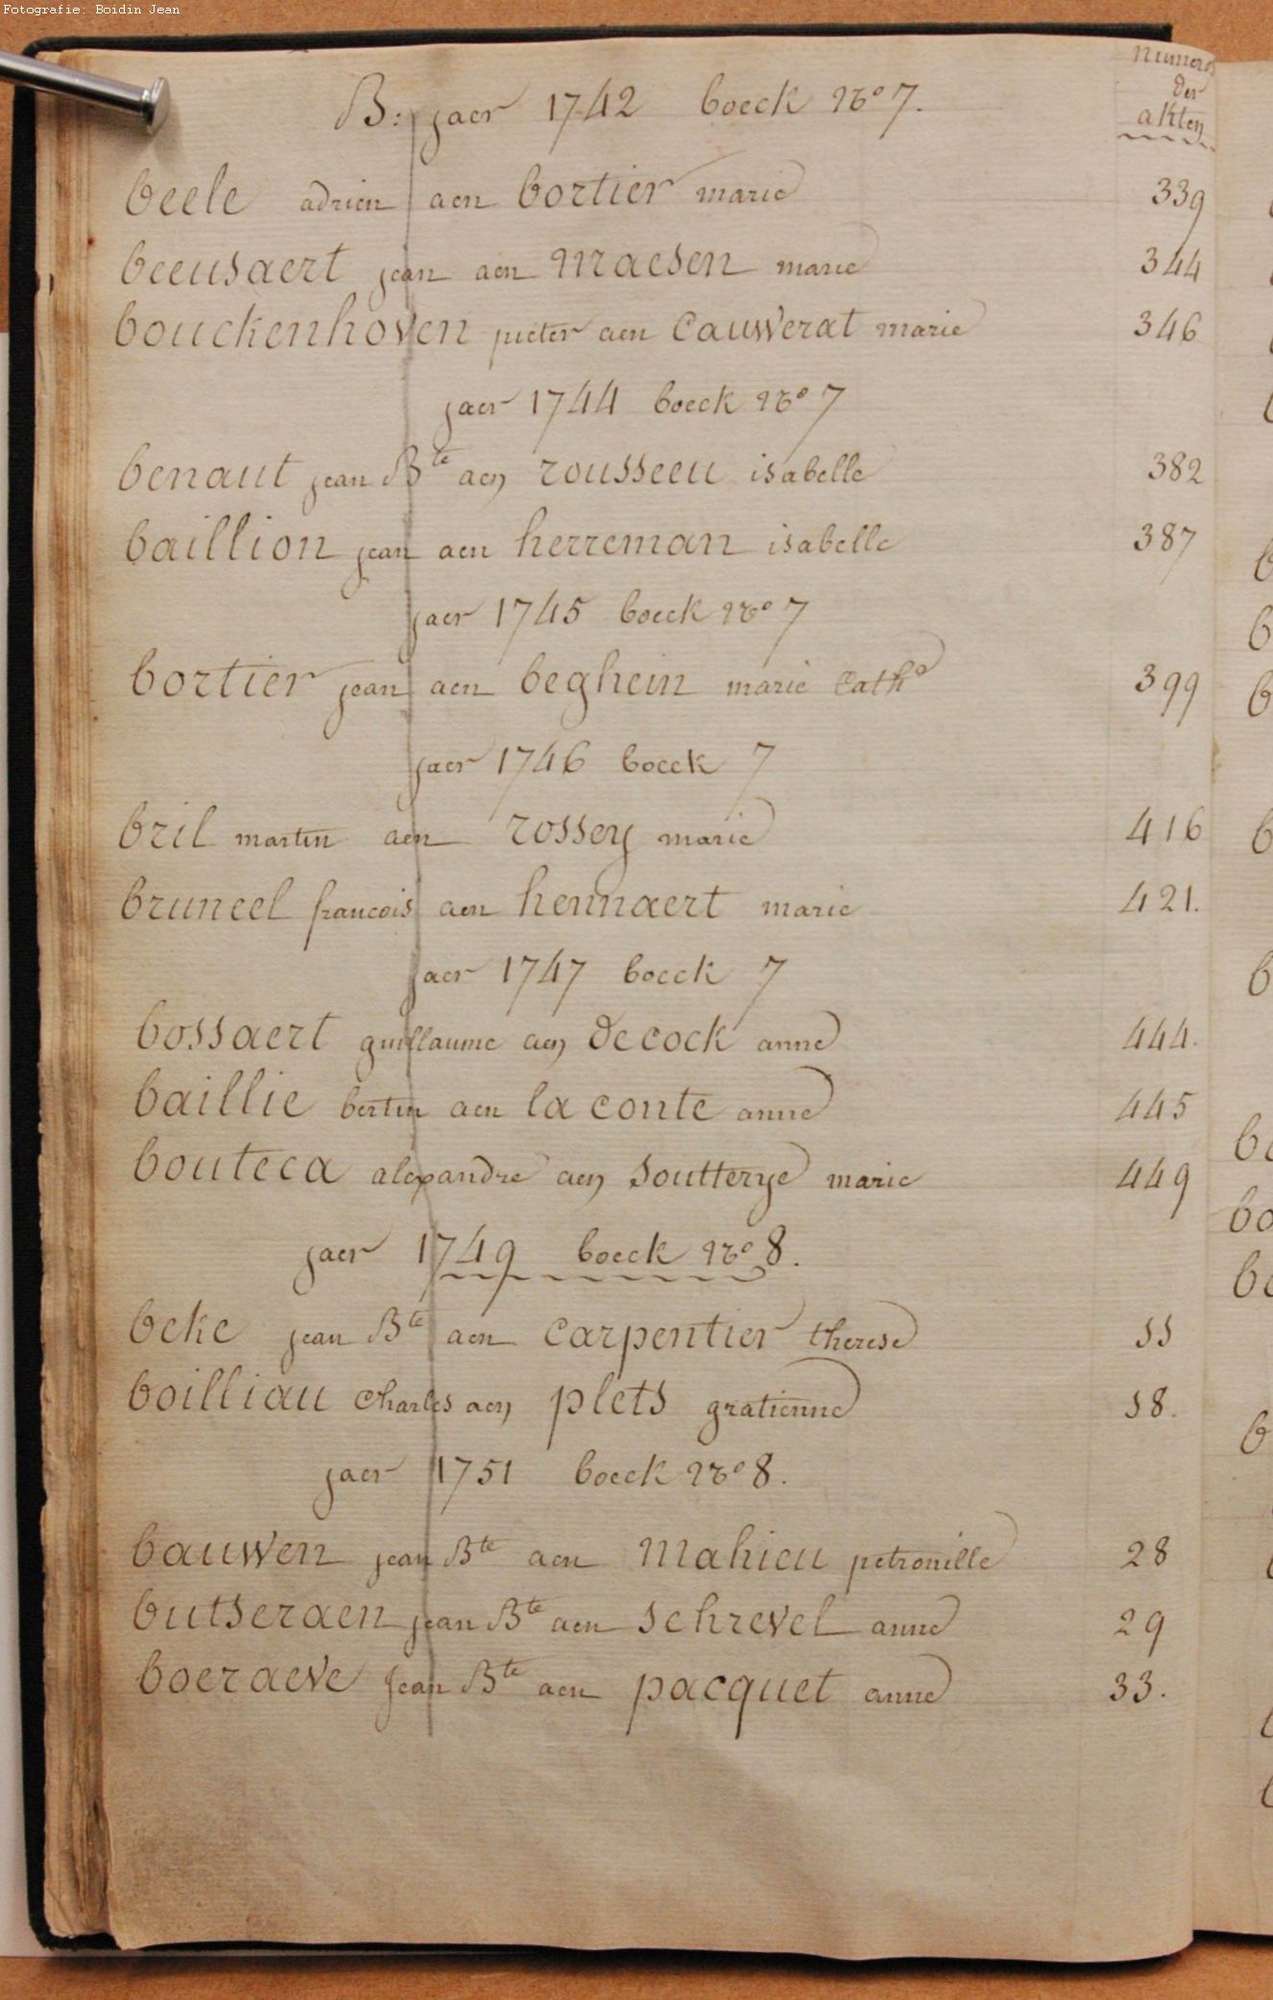 Fotografie: Boidin Jean
numero
der
akten
B: jaer 1742 boeck No 7.
beele adrien aen bortier marie 339
beeusaert jean aen maesen marie 344
bouckenhoven pieter aen Cauwerat marie 346
jaer 1744 boeck No 7
benaut jean Bte aen rousseeu isabelle 382
baillion jean aen herreman isabelle 387
jaer 1745 boeck No 7
bortier jean aen beghein marie Cathe 399
jaer 1746 boeck 7
bril martin aen rossey marie 416
bruneel francois aen hennaert marie 421.
jaer 1747 boeck 7
bossaert guillaume aen decock anne 444.
baillie bertin aen la conte anne 445
bouteca alexandre aen soutterye marie 449
jaer 1749 boeck No 8.
beke jean Bte aen carpentier therese 55
boilliau Charles aen plets gratienne 58.
jaer 1751 boeck No 8.
bauwen jean Bte aen mahieu petronille 28
butseraen jean Bte aen schrevel anne 29
boeraeve Jean Bte aen pacquet anne 33.